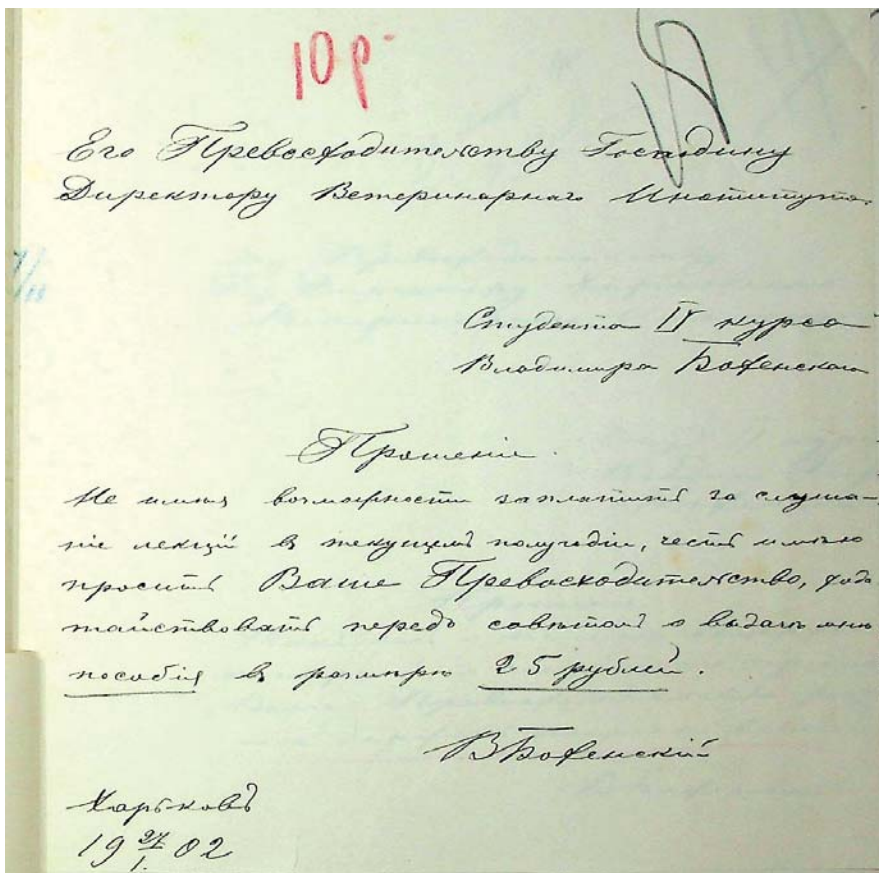 10 р
Его Превосходительству Господину
Директору Ветеринарнаго Института.
Студента IV курса
Владимира Боженскаго
Прошеніе.
Не имѣя возможности заплатить за слуша-
ніе лекцій въ текущемъ полугодіи, честь имѣю
просить Ваше Превосходительство, хода
тайствовать передъ совѣтомъ о выдачѣ мнѣ
пособія въ размѣрѣ 25 рублей.
ВБоженскій
Харьковъ
19 27/1. 02